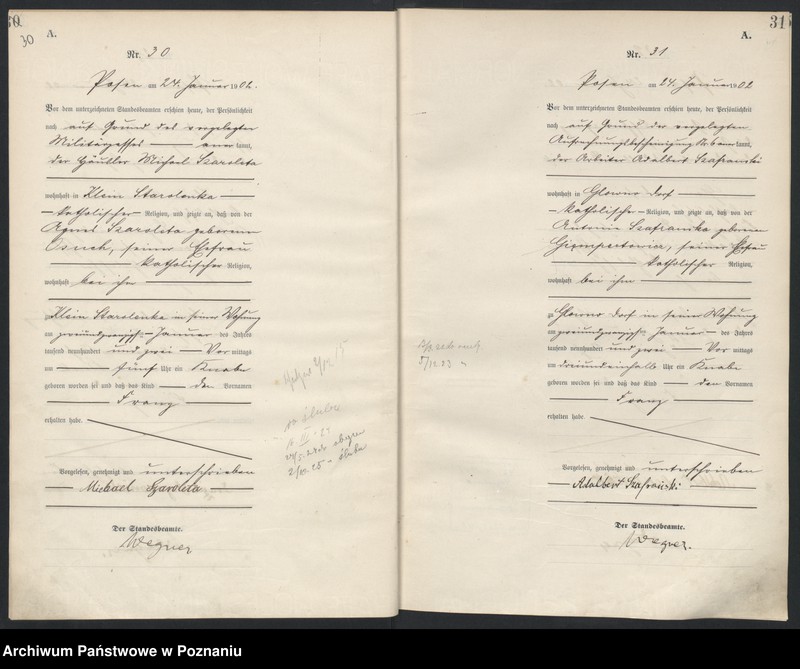 30
A.
Nr. 30
Posen am 24. Januar 1902.
Vor dem unterzeichneten Standesbeamten erschien heute, der Persönlichkeit
nach auf Grund des vorgelegten
Militärpasses — anerkannt,
der Häusler Michael Szarolita
wohnhaft in Klein Starolenka
katholischer Religion, und zeigte an, daß von der
Agnes Szarolita geborenen
seiner Ehefrau
katholischer Religion,
wohnhaft bei ihm
Klein Starolenka in seiner Wohnung
am zweiundzwanzigsten Januar des Jahres
tausend neunhundert und zwei Vormittags
um fünf Uhr ein Knabe
geboren worden sei und daß das Kind den Vornamen
Franz
erhalten habe.
Vorgelesen, genehmigt und unterschrieben
Michael Szarolita
Der Standesbeamte.
Wegner
31
A.
Nr. 31
Posen am 24. Januar 1902
Vor dem unterzeichneten Standesbeamten erschien heute, der Persönlichkeit
nach auf Grund der vorgelegten
Aufrechnungsbescheinigung No 6 anerkannt,
der Arbeiter Adalbert Szafranski
wohnhaft in Glowno Dorf
katholischer Religion, und zeigte an, daß von der
Antonie Szafranska geborenen
seiner Ehefrau
katholischer Religion,
wohnhaft bei ihm
Glowno Dorf in seiner Wohnung
am zweiundzwanzigsten Januar des Jahres
tausend neunhundert und zwei Vormittags
um dreiundeinhalb Uhr ein Knabe
geboren worden sei und daß das Kind den Vornamen
Franz
erhalten habe.
Vorgelesen, genehmigt und unterschrieben
Adalbert Szafrański
Der Standesbeamte.
Wegner.
Archiwum Państwowe w Poznaniu